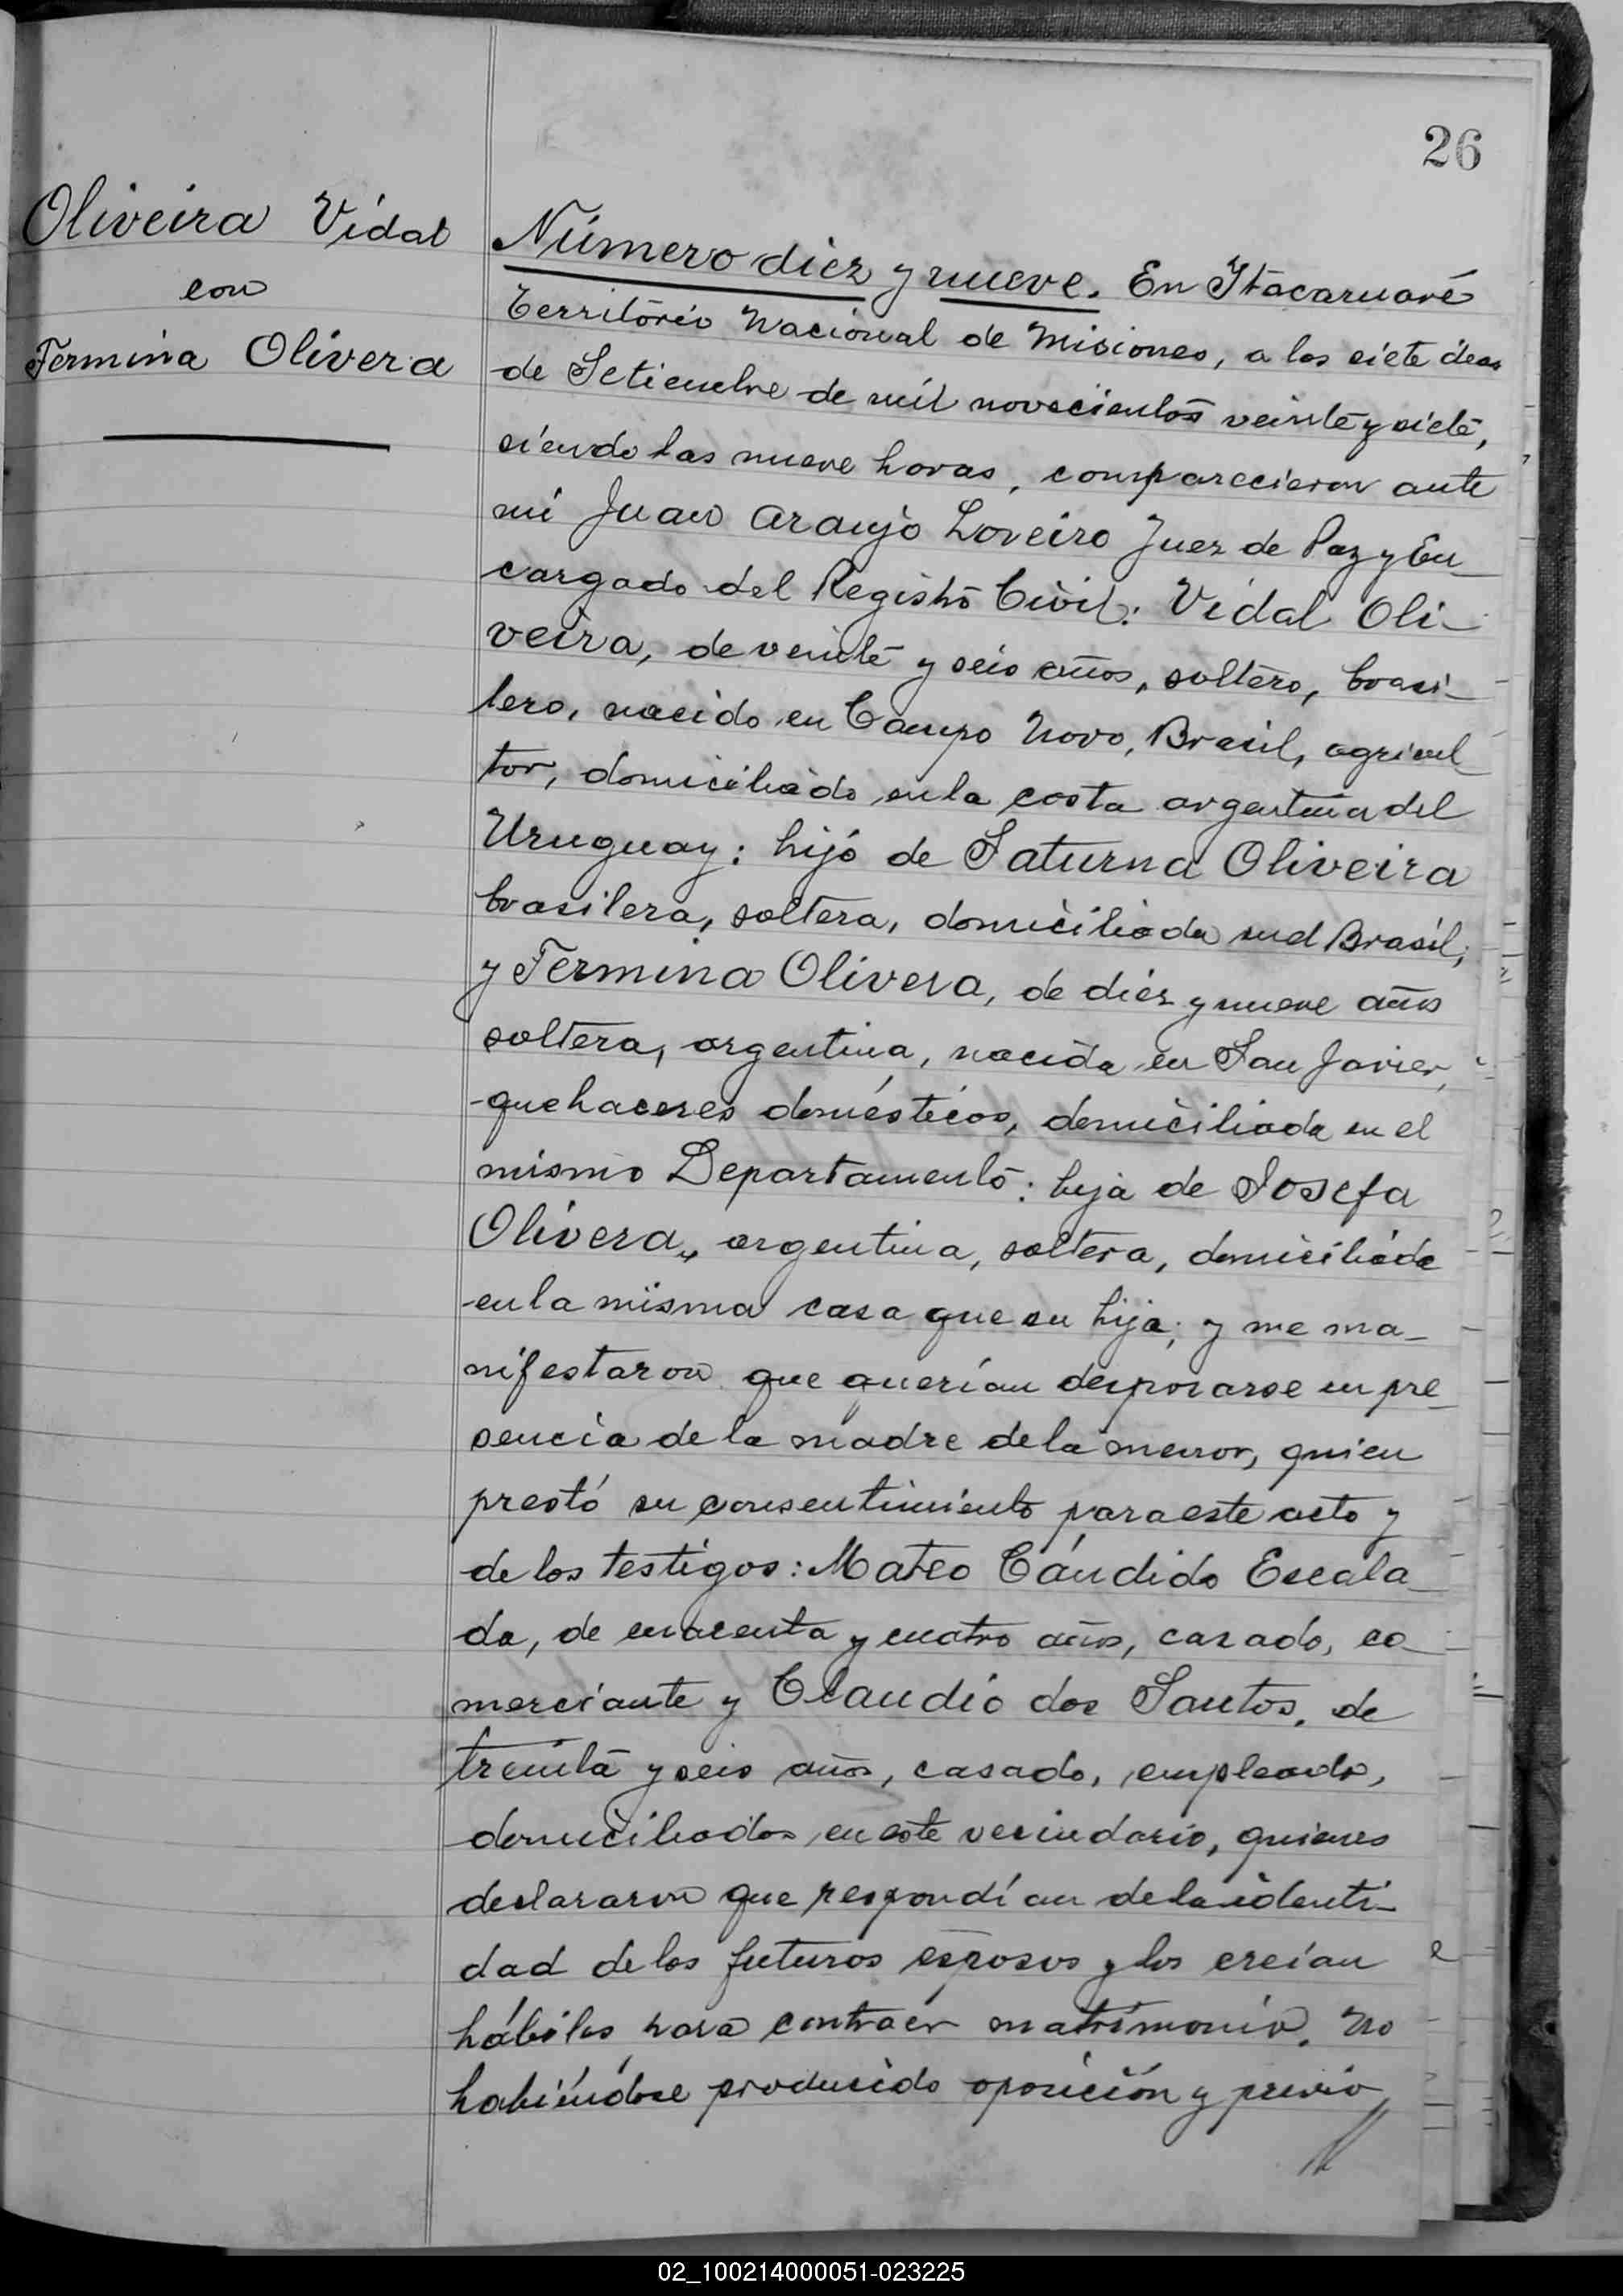 26
Oliveira Vidal
con
Fermina Olivera
Número diez y nueve. En Itacaruaré
Territorio Nacional de Misiones, a los siete dias
de Setiembre de mil novecientos veinte y siete,
siendo las nueve horas, comparecieron ante
mi Juan Araujo Loveiro Juez de Paz y En_
cargado del Registro Civil: Vidal Oli_
veira, de veinte y seis años, soltero, brasi_
lero, nacido en Campo Novo, Brasil, agricul_
tor, domiciliado en la costa argentina del
Uruguay: hijo de Saturna Oliveira
brasilera, soltera, domiciliada en el Brasil;
y Fermina Olivera, de diez y nueve años
soltera, argentina, nacida en San Javier,
quehaceres domésticos, domiciliada en el
mismo Departamento: hija de Josefa
Olivera, argentina, soltera, domiciliada
en la misma casa que su hija; y me ma_
nifestaron que querían desposarse en pre_
sencia de la madre de la menor, quien
prestó su consentimiento para este acto y
de los testigos: Mateo Cándido Escala_
da, de cuarenta y cuatro años, casado, co_
merciante y Claudio dos Santos, de
treinta y seis años, casado, empleado,
domiciliados en este vecindario, quienes
declararon que respondían de la identi_
dad de los futuros esposos y los creían
hábiles para contraer matrimonio. No
habiéndose producido oposición y previo
02_100214000051-023225